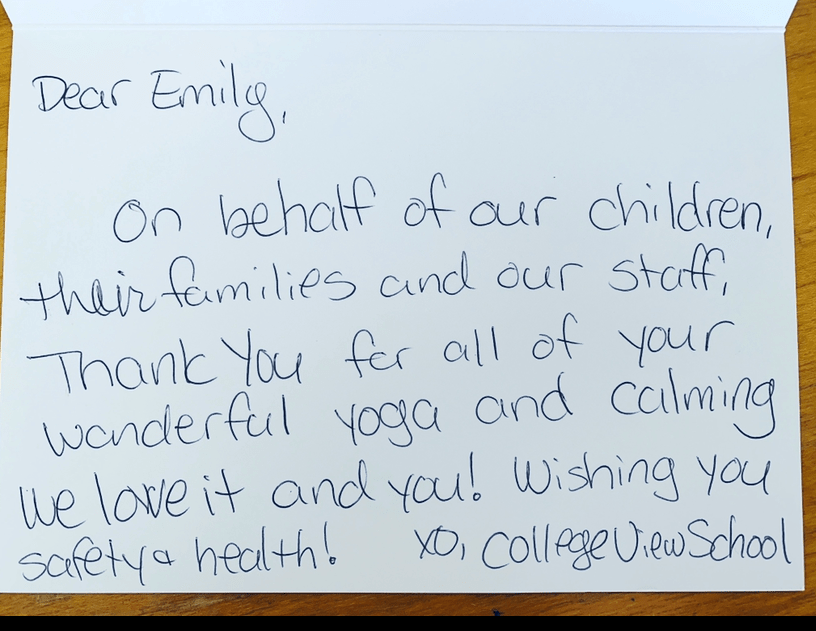 Dear Emily,
On behalf of our children,
their families and our staff,
Thank You for all of your
wonderful yoga and calming
We love it and you! Wishing you
safety & health! XO, College View School